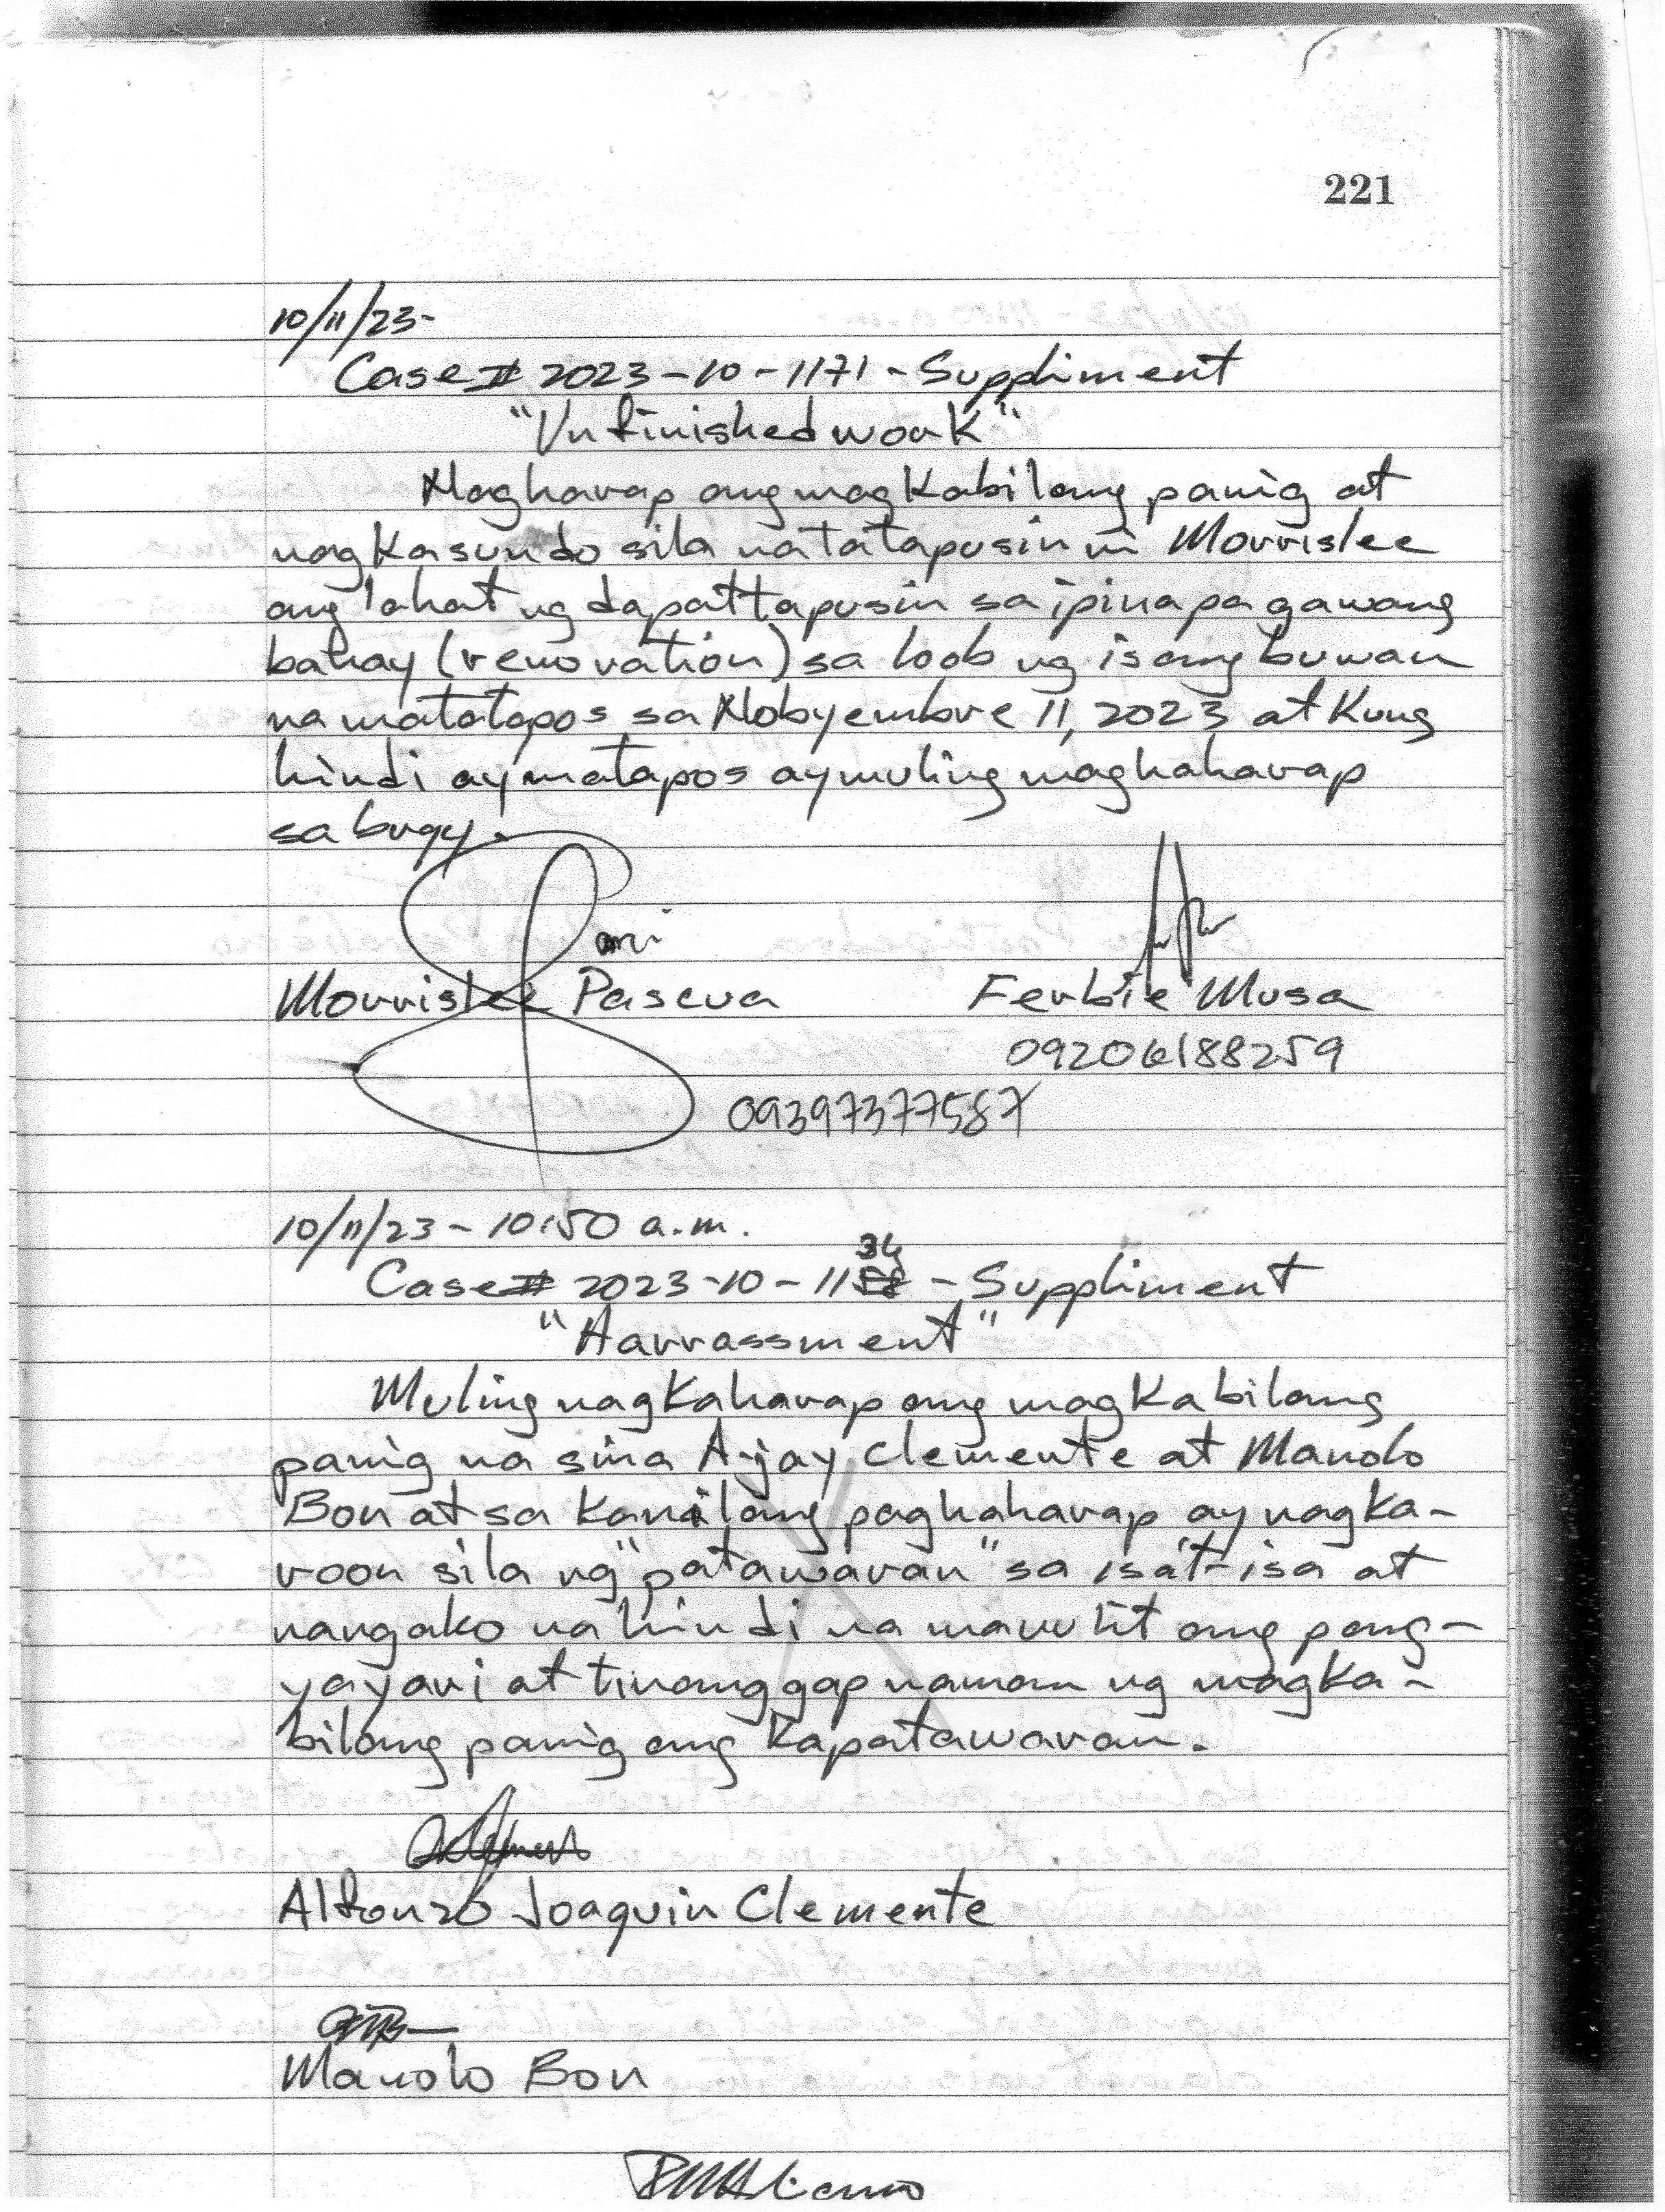 221
10/11/23-
Case# 2023-10-1171-Suppliment
"Unfinished work"
Nagharap ang magkabilang panig at
nagkasundo sila na tatapusin ni Morrislee
ang lahat ng dapat tapusin sa ipinapagawang
bahay (renovation) sa loob ng isang buwan
na matatapos sa Nobyembre 11, 2023 at kung
hindi ay matapos ay muling maghaharap
sa brgy.
Morrislee Pascua Ferbie Musa
09206188259
09397377587
10/11/23-10:50 a.m.
34
Case# 2023-10-1158-Suppliment
"Harrassment"
Muling nagkaharap ang magkabilang
panig na sina A-jay Clemente at Manolo
Bon at sa kanilang paghaharap ay nagka-
roon sila ng "patawaran" sa isa't-isa at
nangako na hindi na mauulit ang pang-
yayari at tinanggap naman ng magka-
bilang panig ang kapatawaran.
Alfonzo Joaquin Clemente
Manolo Bon